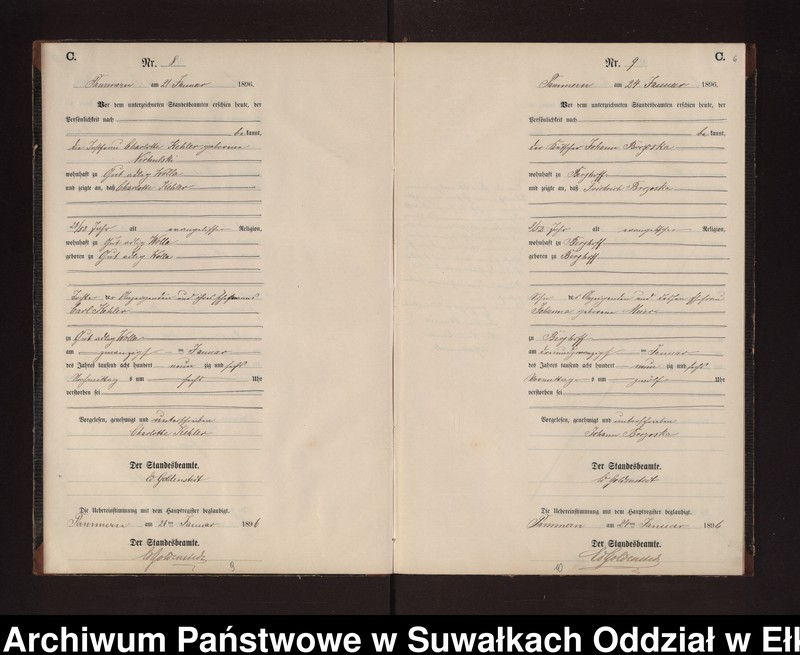 C.
Nr. 8
Pammern am 21 Januar 1896.
Vor dem unterzeichneten Standesbeamten erschien heute, der
Persönlichkeit nach
bekannt,
die Losfrau Charlotte Kehler geborene
wohnhaft zu Gut adlig Wolla
und zeigte an, daß Charlotte Kehler
alt evangelischer Religion,
wohnhaft zu Gut adlig Wolla
geboren zu Gut adlig Wolla
Tochter der Anzeigenden und ihres Ehemanns
Carl Kehler
zu Gut adlig Wolla
am zwanzigsten Januar
des Jahres tausend acht hundert neunzig und sechs
Nachmittags um sechs Uhr
verstorben sei
Vorgelesen, genehmigt und unterschrieben
Charlotte Kehler
Der Standesbeamte.
Goldenstedt
Die Uebereinstimmung mit dem Hauptregister beglaubigt.
Pammern am 21ten Januar 1896
Der Standesbeamte.
Goldenstedt
9
C. 6
Nr. 9
Pammern am 24 Januar 1896.
Vor dem unterzeichneten Standesbeamten erschien heute, der
Persönlichkeit nach
bekannt,
der Kätner Johann Brzoska
wohnhaft zu Berghoff
und zeigte an, daß Friedrich Brzoska
alt evangelischer Religion,
wohnhaft zu Berghoff
geboren zu Berghoff
Sohn des Anzeigenden und dessen Ehefrau
Johanna geborene
zu Berghoff
am dreiundzwanzigsten Januar
des Jahres tausend acht hundert neunzig und sechs
Vormittags um zwölf Uhr
verstorben sei
Vorgelesen, genehmigt und unterschrieben
Johann Brzoska
Der Standesbeamte.
Goldenstedt
Die Uebereinstimmung mit dem Hauptregister beglaubigt.
Pammern am 24ten Januar 1896
Der Standesbeamte.
Goldenstedt
10
Archiwum Państwowe w Suwałkach Oddział w Ełk